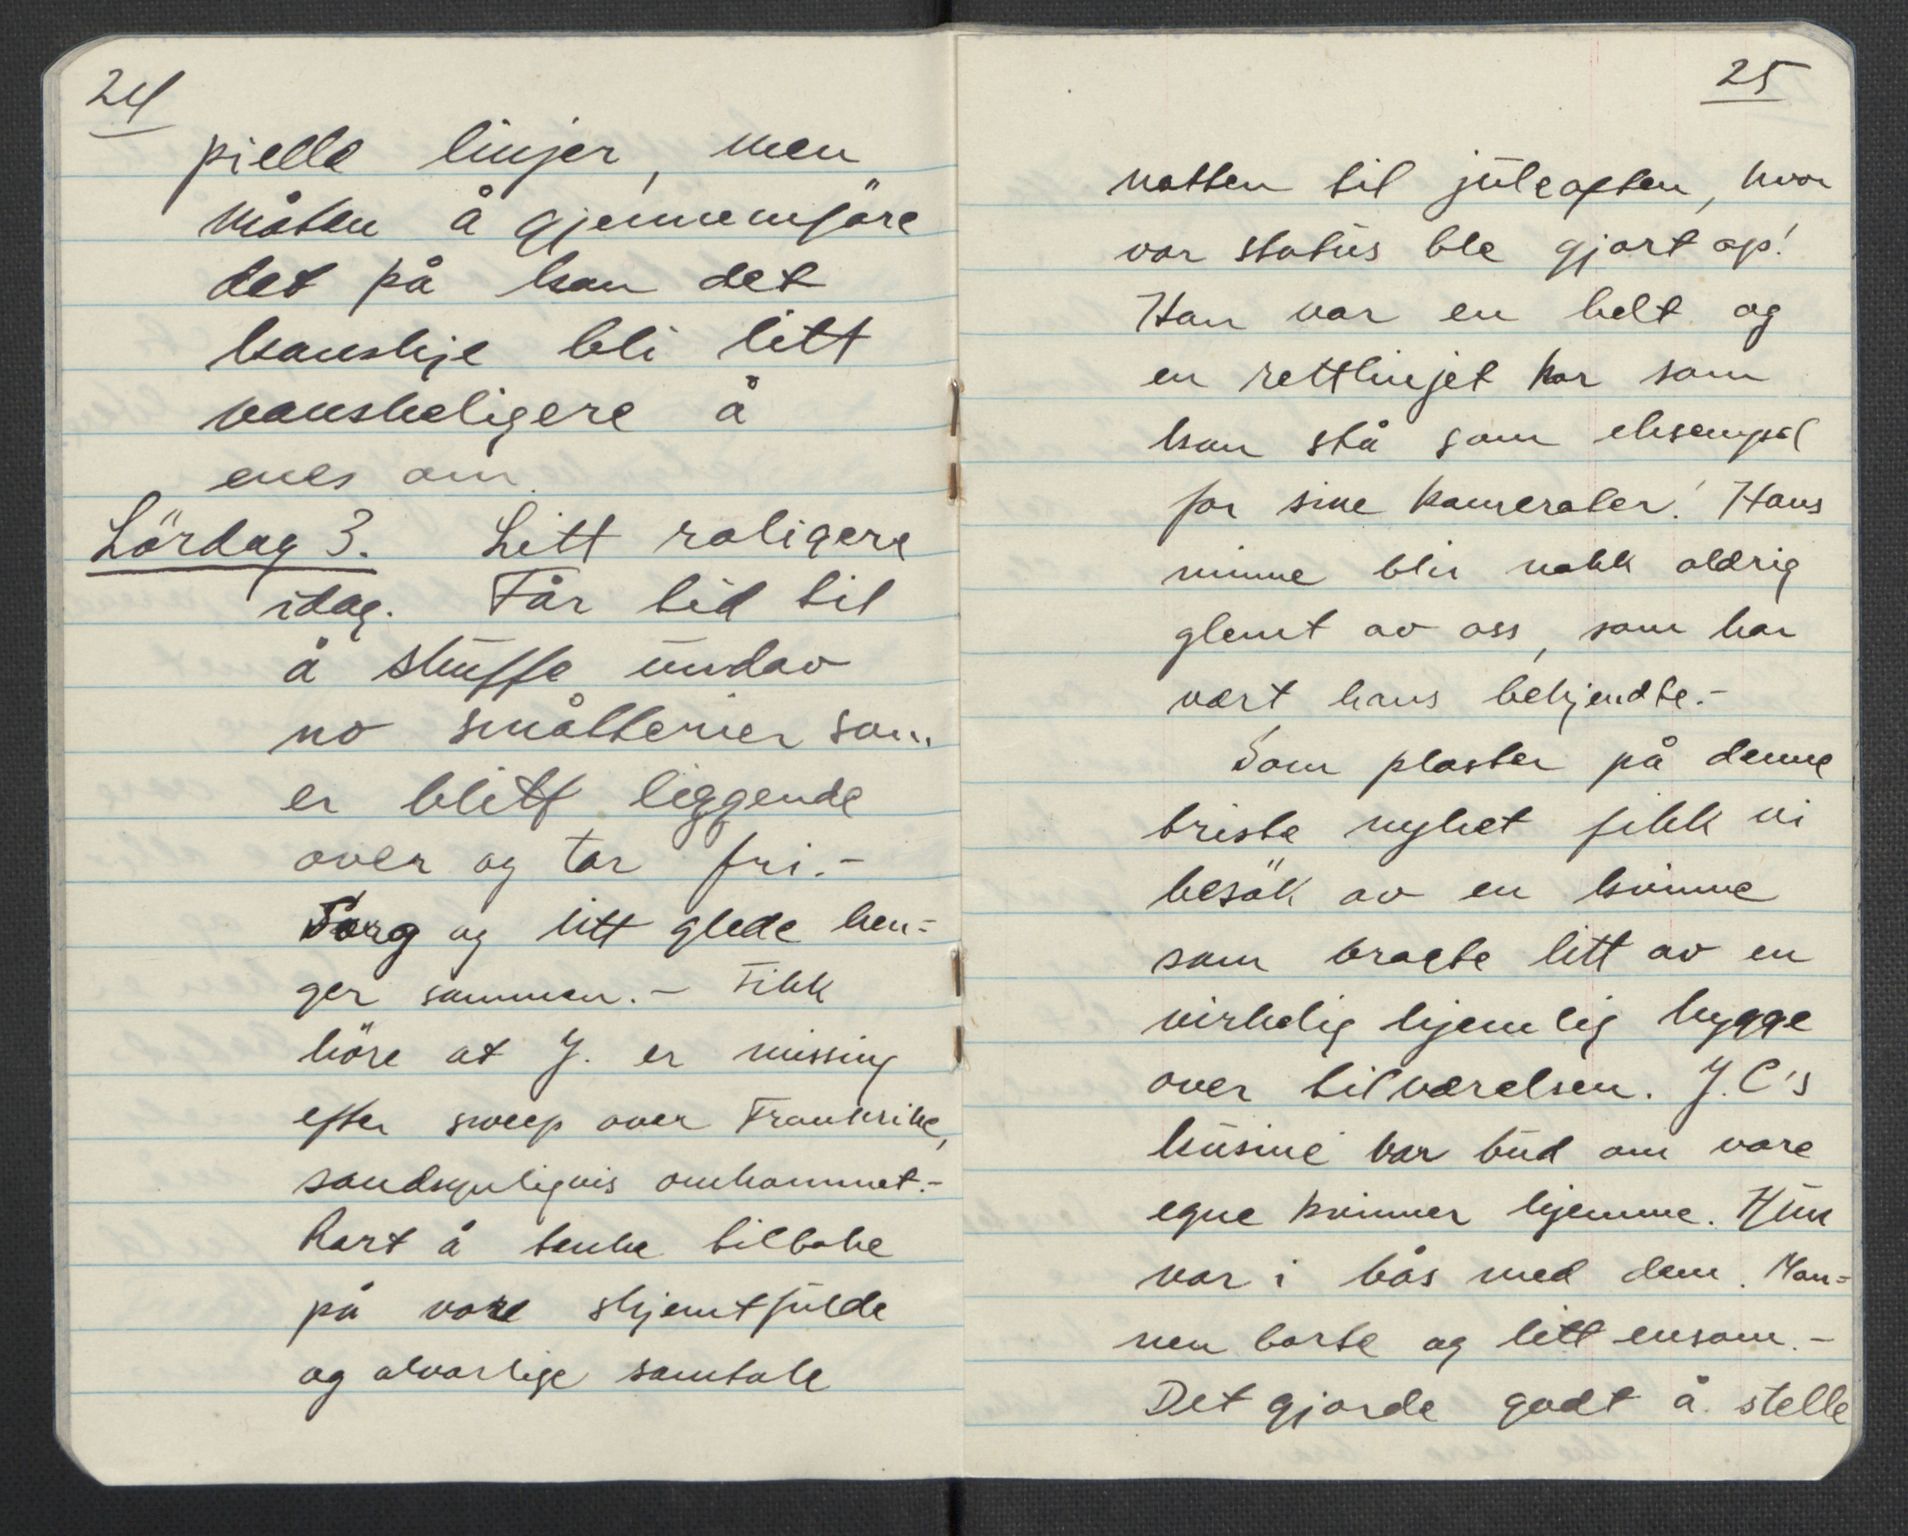 24
pielle linjer, men
måten å gjennemföre
det på kan det
kanskje bli litt
vanskeligere å
enes om.
Lördag 3. Litt roligere
idag. Får tid til
å skuffe undav
no småtterier som
er blitt liggende
over og tar fri.-
Sorg og litt glede hen-
ger sammen.- Fikk
höre at J. er missing
efter sweep over Frankrike,
sandsynligvis omkommet.-
Rart å tenke tilbake
på vore skjemtfulde
og alvorlige samtale
25
natten til juleaften, hvor
vor status ble gjort op!
Han var en helt og
en rettlinjet kar som
kan stå som eksempel
for sine kamerater! Hans
minne blir nokk aldrig
glemt av oss, som har
vært hans bekjendte.-
Som plaster på denne
triste nyhet fikk vi
besök av en kvinne
som bragte litt av en
virkelig hjemlig hygge
over tilværelsen. J.C's
kusine var bud om vore
egne kvinner hjemme. Hun
var i bås med dem. Man-
nen borte og litt ensom.-
Det gjorde godt å stelle